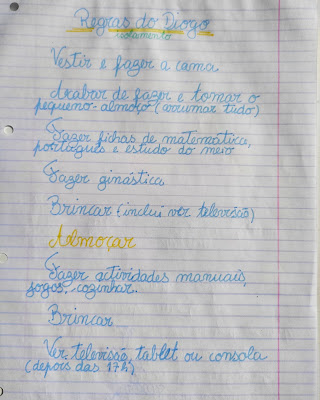 Regras do Diogo
isolamento
Vestir e fazer a cama
Acabar de fazer e tomar o
pequeno-almoço (arrumar tudo)
Fazer fichas de matemática,
português e estudo do meio
Fazer ginástica
Brincar (inclui ver televisão)
Almoçar
Fazer actividades manuais,
jogos, cozinhar.
Brincar
Ver televisão, tablet ou consola
(depois das 17h)